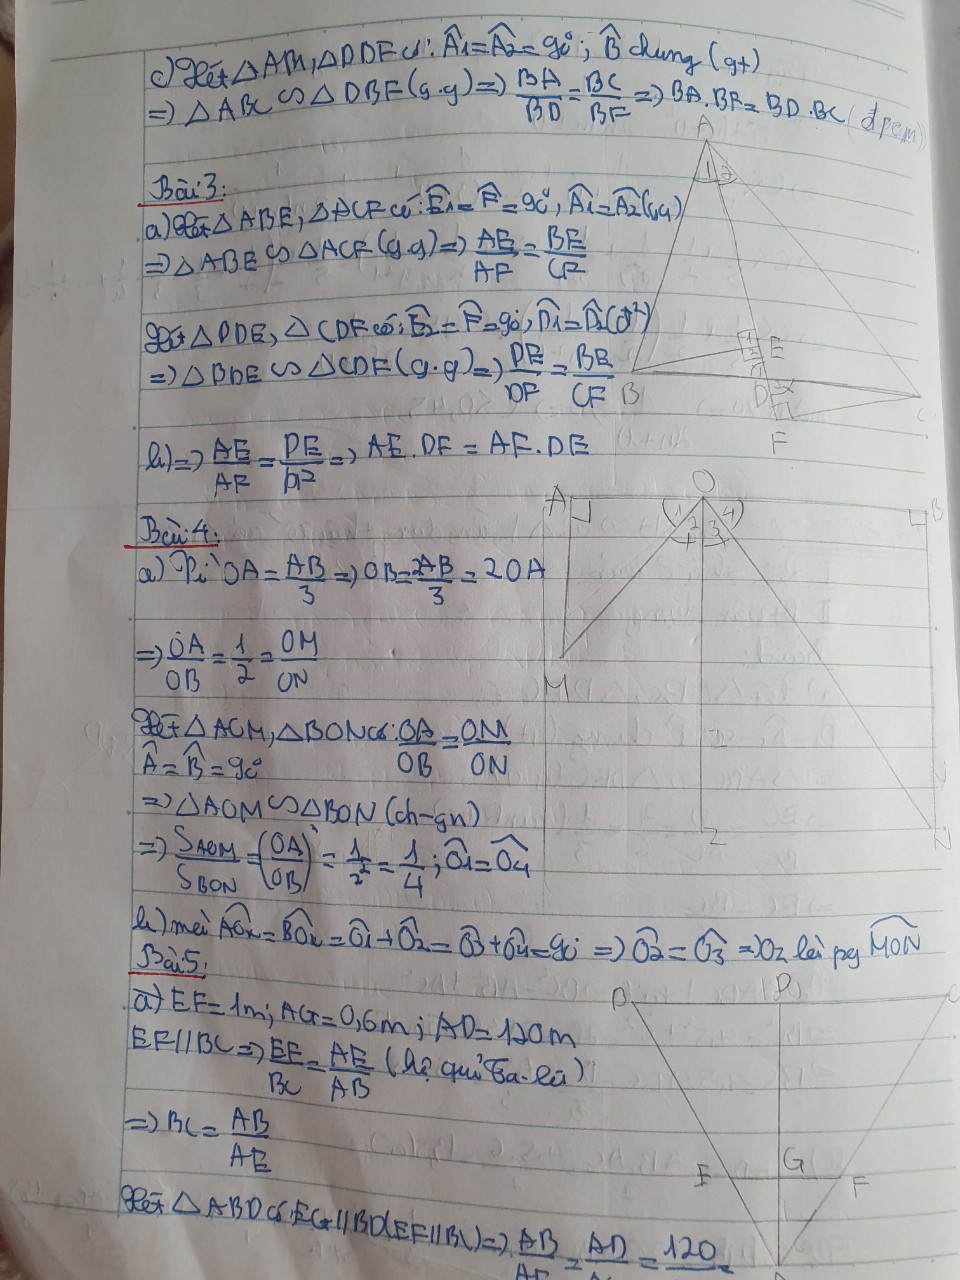 c) Xét △ABC, △DBF có: Â1=Â2=90°; B̂ chung (gt)
=> △ABC ∽ △DBF (g.g) => BA/BD = BC/BF => BA.BF = BD.BC (đpcm)
Bài 3:
a) Xét △ABE, △ACF có: Ê1=F̂=90°, Â1=Â2(gt)
=> △ABE ∽ △ACF (g.g) => AE/AF = BE/CF
Xét △BDE, △CDF có: Ê2=F̂=90°, D̂1=D̂2(đ²)
=> △BDE ∽ △CDF (g.g) => DE/DF = BE/CF
b) => AE/AF = DE/DF => AE.DF = AF.DE
Bài 4:
a) Vì OA = AB/3 => OB = 2AB/3 = 2OA
=> OA/OB = 1/2 = OM/ON
Xét △AOM, △BON có: OA/OB = OM/ON
Â = B̂ = 90°
=> △AOM ∽ △BON (ch-gn)
=> S AOM/S BON = (OA/OB)² = 1/2² = 1/4; Ô1=Ô4
b) mà AOz = BOz = Ô1+Ô2 = Ô3+Ô4 = 90° => Ô2=Ô3 => Oz là pg MON
Bài 5:
a) EF = 1m; AG = 0,6m; AD = 120m
EF//BC => EF/BC = AE/AB (hệ quả Ta-lét)
=> BC = AB/AE
Xét △ABD có: EG//BD(EF//BC) => AB/AE = AD/AG = 120
A
1 2
E
B
D
C
F
A
O
B
1 2 3 4
M
z
N
B
D
C
E
G
F